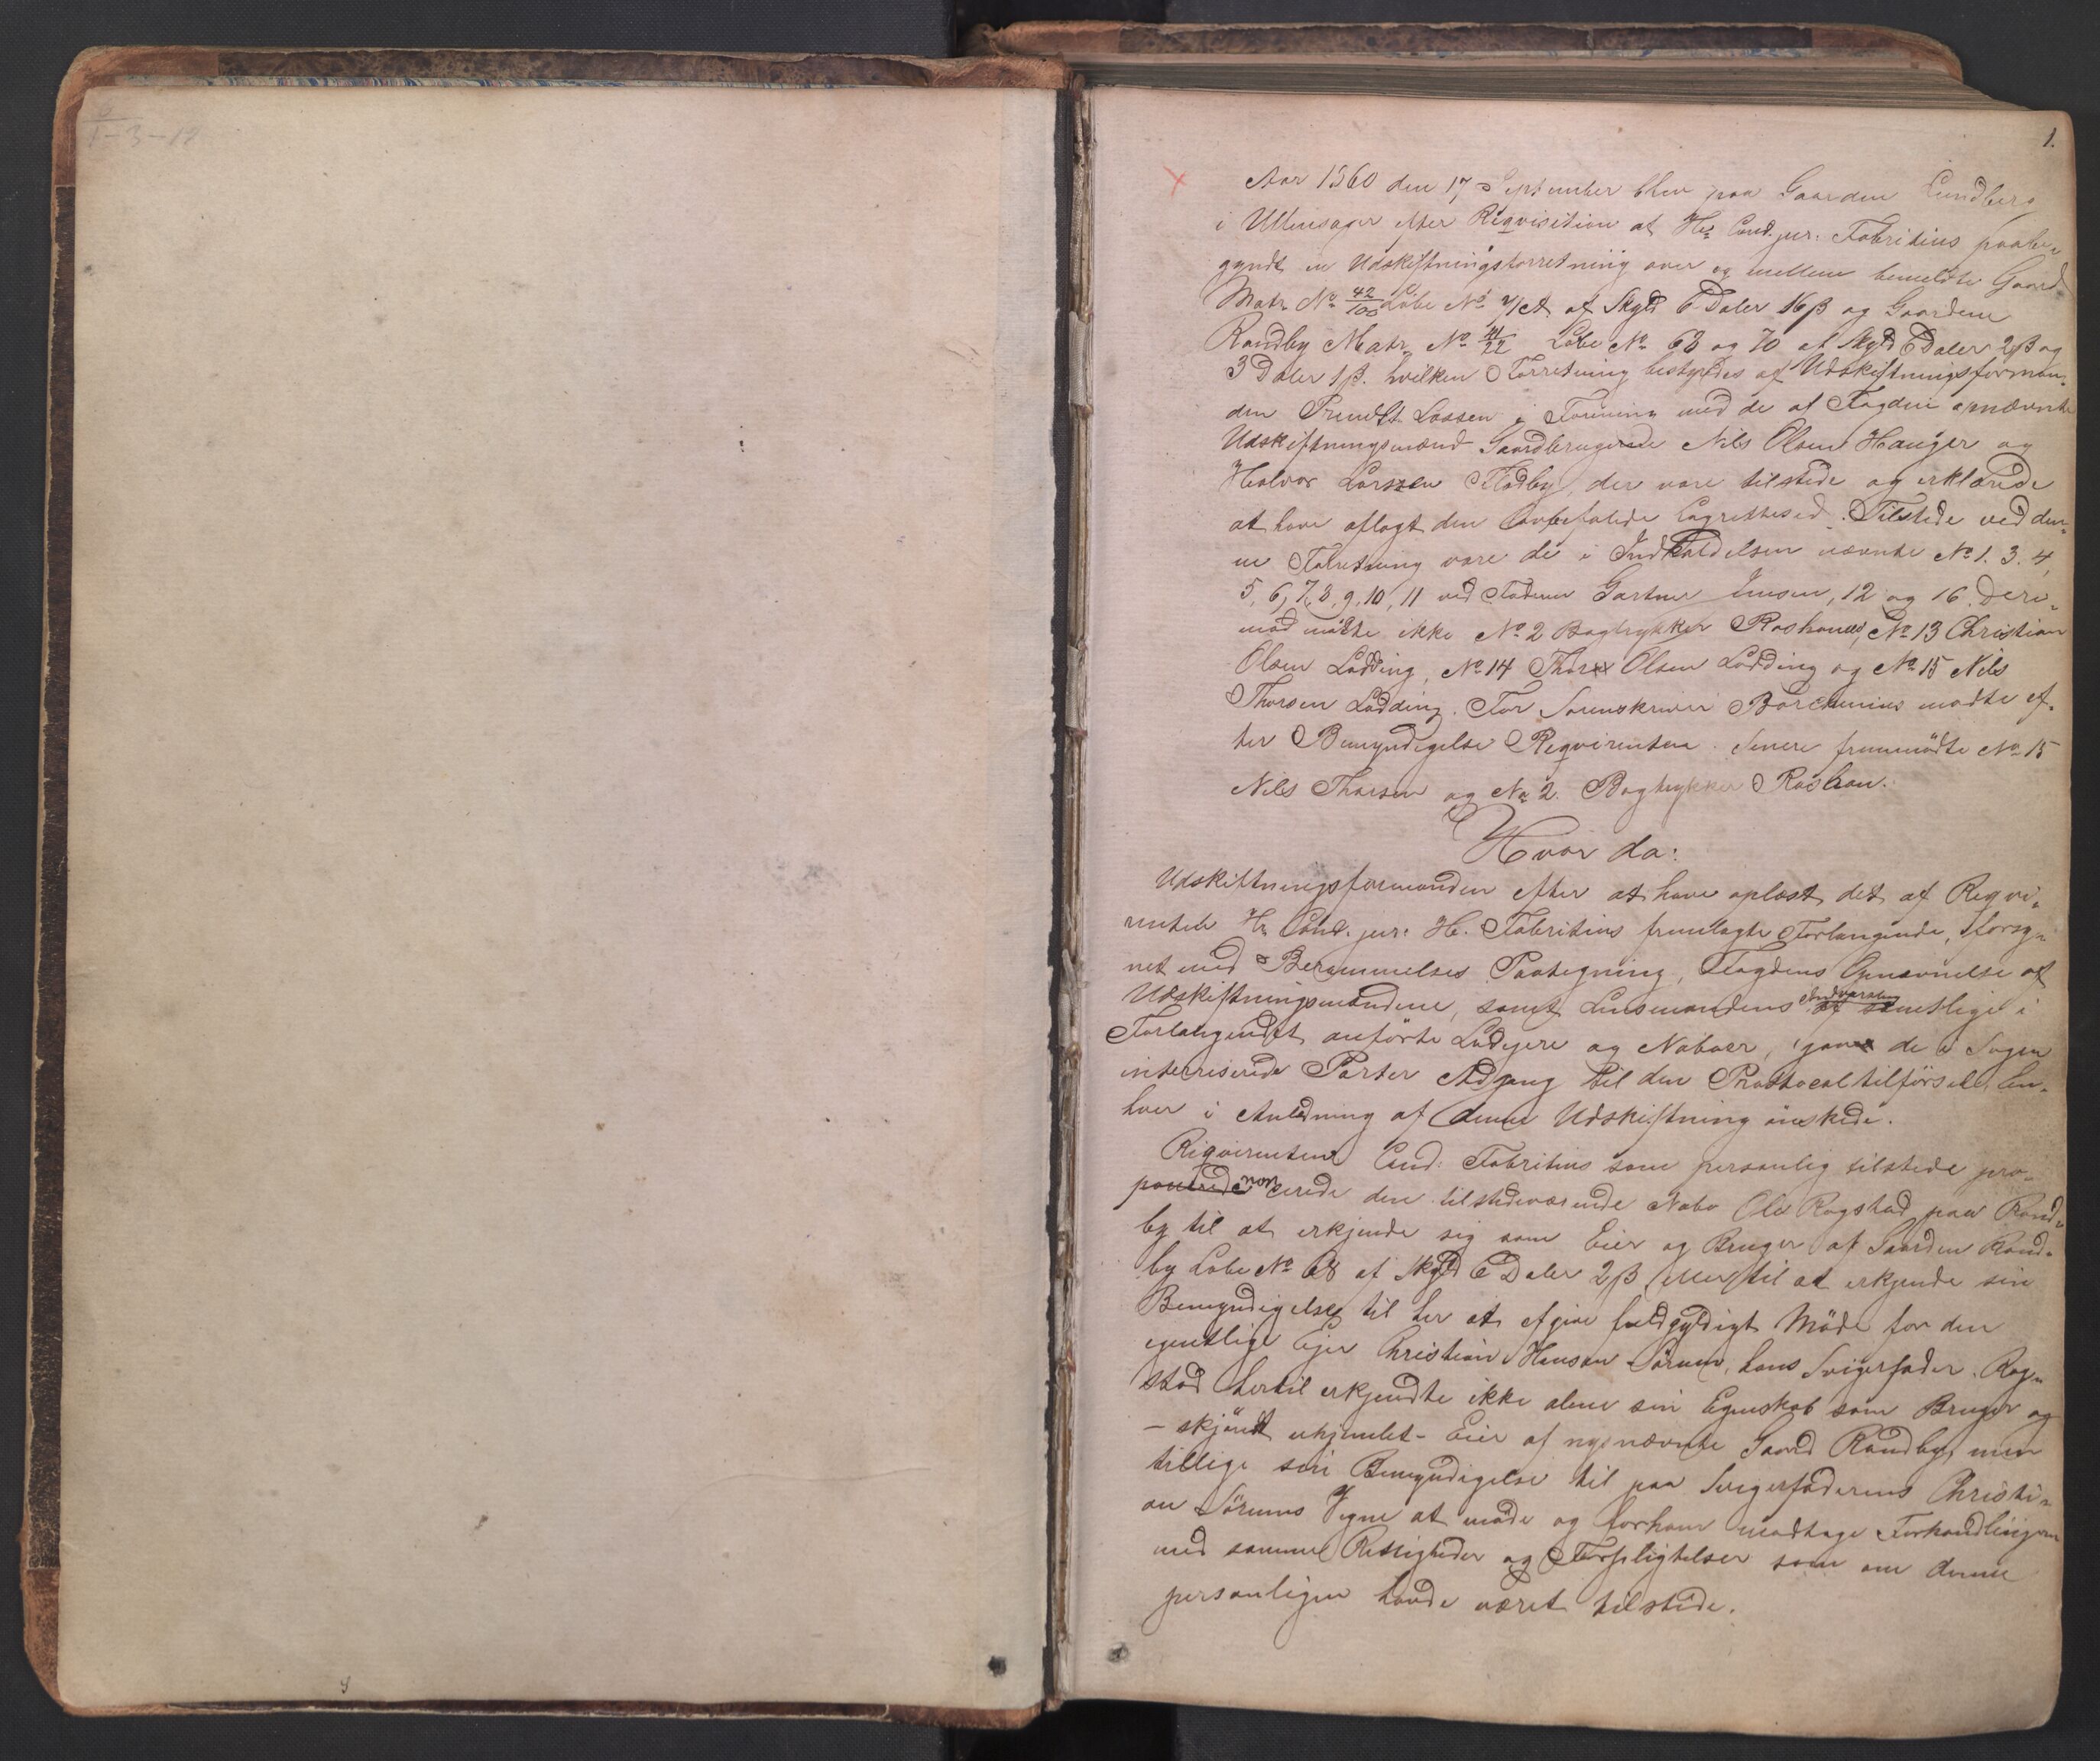 1-3-12
1.
Aar 1860 den 17 September blev paa Gaarden Lundberg
i Ullensager efter Reqvisition af Hr. Cand. jur. Fabritius paabe-
gyndt en Udskiftningsforretning over og mellem bemeldte Gaard
Matr. No 42/100 Løbe No 71ct. af Skyld 6 Daler 16 β og Gaardene
Randby Matr. No 41/22 Løbe No 68 og 70 af Skyld 6 Daler 2 β og
3 Daler 1 β. hvilken Forretning bestyredes af Udskiftningsforman-
den Premlt Lassen i Forening med de af Fogden opnævnte
Udskiftningsmænd Gaardbrugerne Nils Olsen Hauger og
Halvor Larssen Fladby, der vare tilstede og erklærede
at have aflagt den lovbefalede Lagrettesed. Tilstede ved den-
ne Forretning vare de i Indkaldelsen nævnte No 1. 3. 4,
5, 6, 7, 8, 9, 10, 11 ved Faderen Gartner Jensen, 12 og 16. Deri-
mod mødte ikke No 2 Bogtrykker Roshaued, No 13 Christian
Olsen Lødding, No 14 Thor Olsen Lødding og No 15 Nils
Thorsen Lødding. For Sorenskriver Borchenius mødte ef-
ter Bemyndigelse Reqvirenten. Senere fremmødte No 15
Nils Thorsen og No 2. Bogtrykker Roshau.
Hvor da:
Udskiftningsformanden efter at have oplæst det af Reqvi-
renten Hr. Cand. jur. H. Fabritius fremlagte Forlangende, forsy-
net med Berammelses Paategning, Fogdens Opnævnelse af
Udskiftningsmændene, samt Lensmandens af samtlige i
Forlangendet anførte Lodeiere og Naboer, gav de i Sagen
interriserede Parter Adgang til den Prottocoltilførsel, En-
hver i Anledning af denne Udskiftning ønskede.
Reqvirenten Cand. Fabritius som personlig tilstede pro-
ponerede vocerede den tilstedeværende Nabo Ole Rogstad paa Rand-
by til at erkjende sig som Eier og Bruger af Gaarden Rand-
by Løbe No 68 af Skyld 6 Daler 2 β eller til at erkjende sin
Bemyndigelse til her at afgive fuldgyldigt Møde for den
egentlige Ejer Christian Hansen Sørum, hans Svigerfader. Rog-
stad hertil erkjendte ikke alene sin Egenskab som Bruger og
- skjøndt uhjemlet - Eier af nysnævnte Gaard Randby, men
tillige sin Bemyndigelse til paa Svigerfaderens Christi-
an Sørums Vegne at møde og forham modtage Forhandlingen
med samme Rettigheder og Forpligtelser som om denne
personligen havde været tilstede.